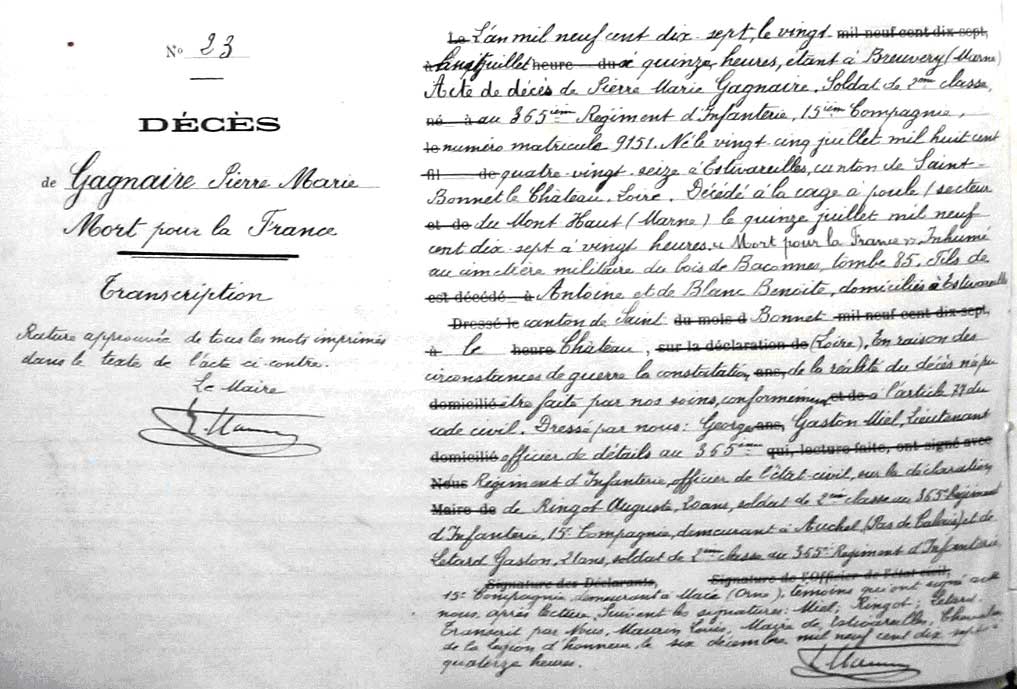 N° 23
DÉCÈS
de Gagnaire Pierre Marie
Mort pour la France
Transcription
Rature approuvée de tous les mots imprimés
dans le texte de l'acte ci-contre.
Le Maire
Le L'an mil neuf cent dix-sept, le vingt mil neuf cent dix-sept,
à juillet heure du à quinze heures, étant à Breuvery (Marne)
Acte de décès de Pierre Marie Gagnaire. Soldat de 2ème classe,
né à au 365ième Régiment d'Infanterie, 15ième Compagnie,
le numéro matricule 9151. Né le vingt cinq juillet mil huit cent
fil de quatre-vingt-seize à Estivareilles, canton de Saint-
Bonnet le Château, Loire. Décédé à la cage à poule (secteur
et de du Mont Haut (Marne) le quinze juillet mil neuf
cent dix-sept à vingt heures. « Mort pour la France ». Inhumé
au cimetière militaire du bois de Baconnes, tombe 85. Fils de
est décédé à Antoine et de Blanc Benoite, domiciliés à Estivareilles
Dressé le canton de Saint du mois d Bonnet mil neuf cent dix-sept,
à le heure Château, sur la déclaration de (Loire). En raison des
circonstances de guerre la constatation ans, de la réalité du décès n'a pu
domicilié être faite par nos soins, conformément et de à l'article 77 du
code civil. Dressé par nous: Georges ans, Gaston Miel, Lieutenant
domicilié officier de détails au 365ème qui, lecture faite, ont signé avec
Nous Régiment d'Infanterie, officier de l'état-civil, sur les déclarations
Maire de de Ringot Auguste, 20 ans, soldat de 2ème classe au 365e Régiment
d'Infanterie, 15e Compagnie, demeurant à Auchel (Pas de Calais) et de
Letard Gaston, 21 ans, soldat de 2ème classe au 365e Régiment d'Infanterie,
Signature des Déclarants, Signature de l'Officier de l'état civil,
15e Compagnie, demeurant à Macé (Orne), témoins qui ont signé avec
nous, après lecture. Suivent les signatures: Miel; Ringot; Letard.
Transcrit par Nous, Louis, Maire de Estivareilles, Chevalier
de la légion d'honneur, le six décembre mil neuf cent dix sept
quatorze heures.